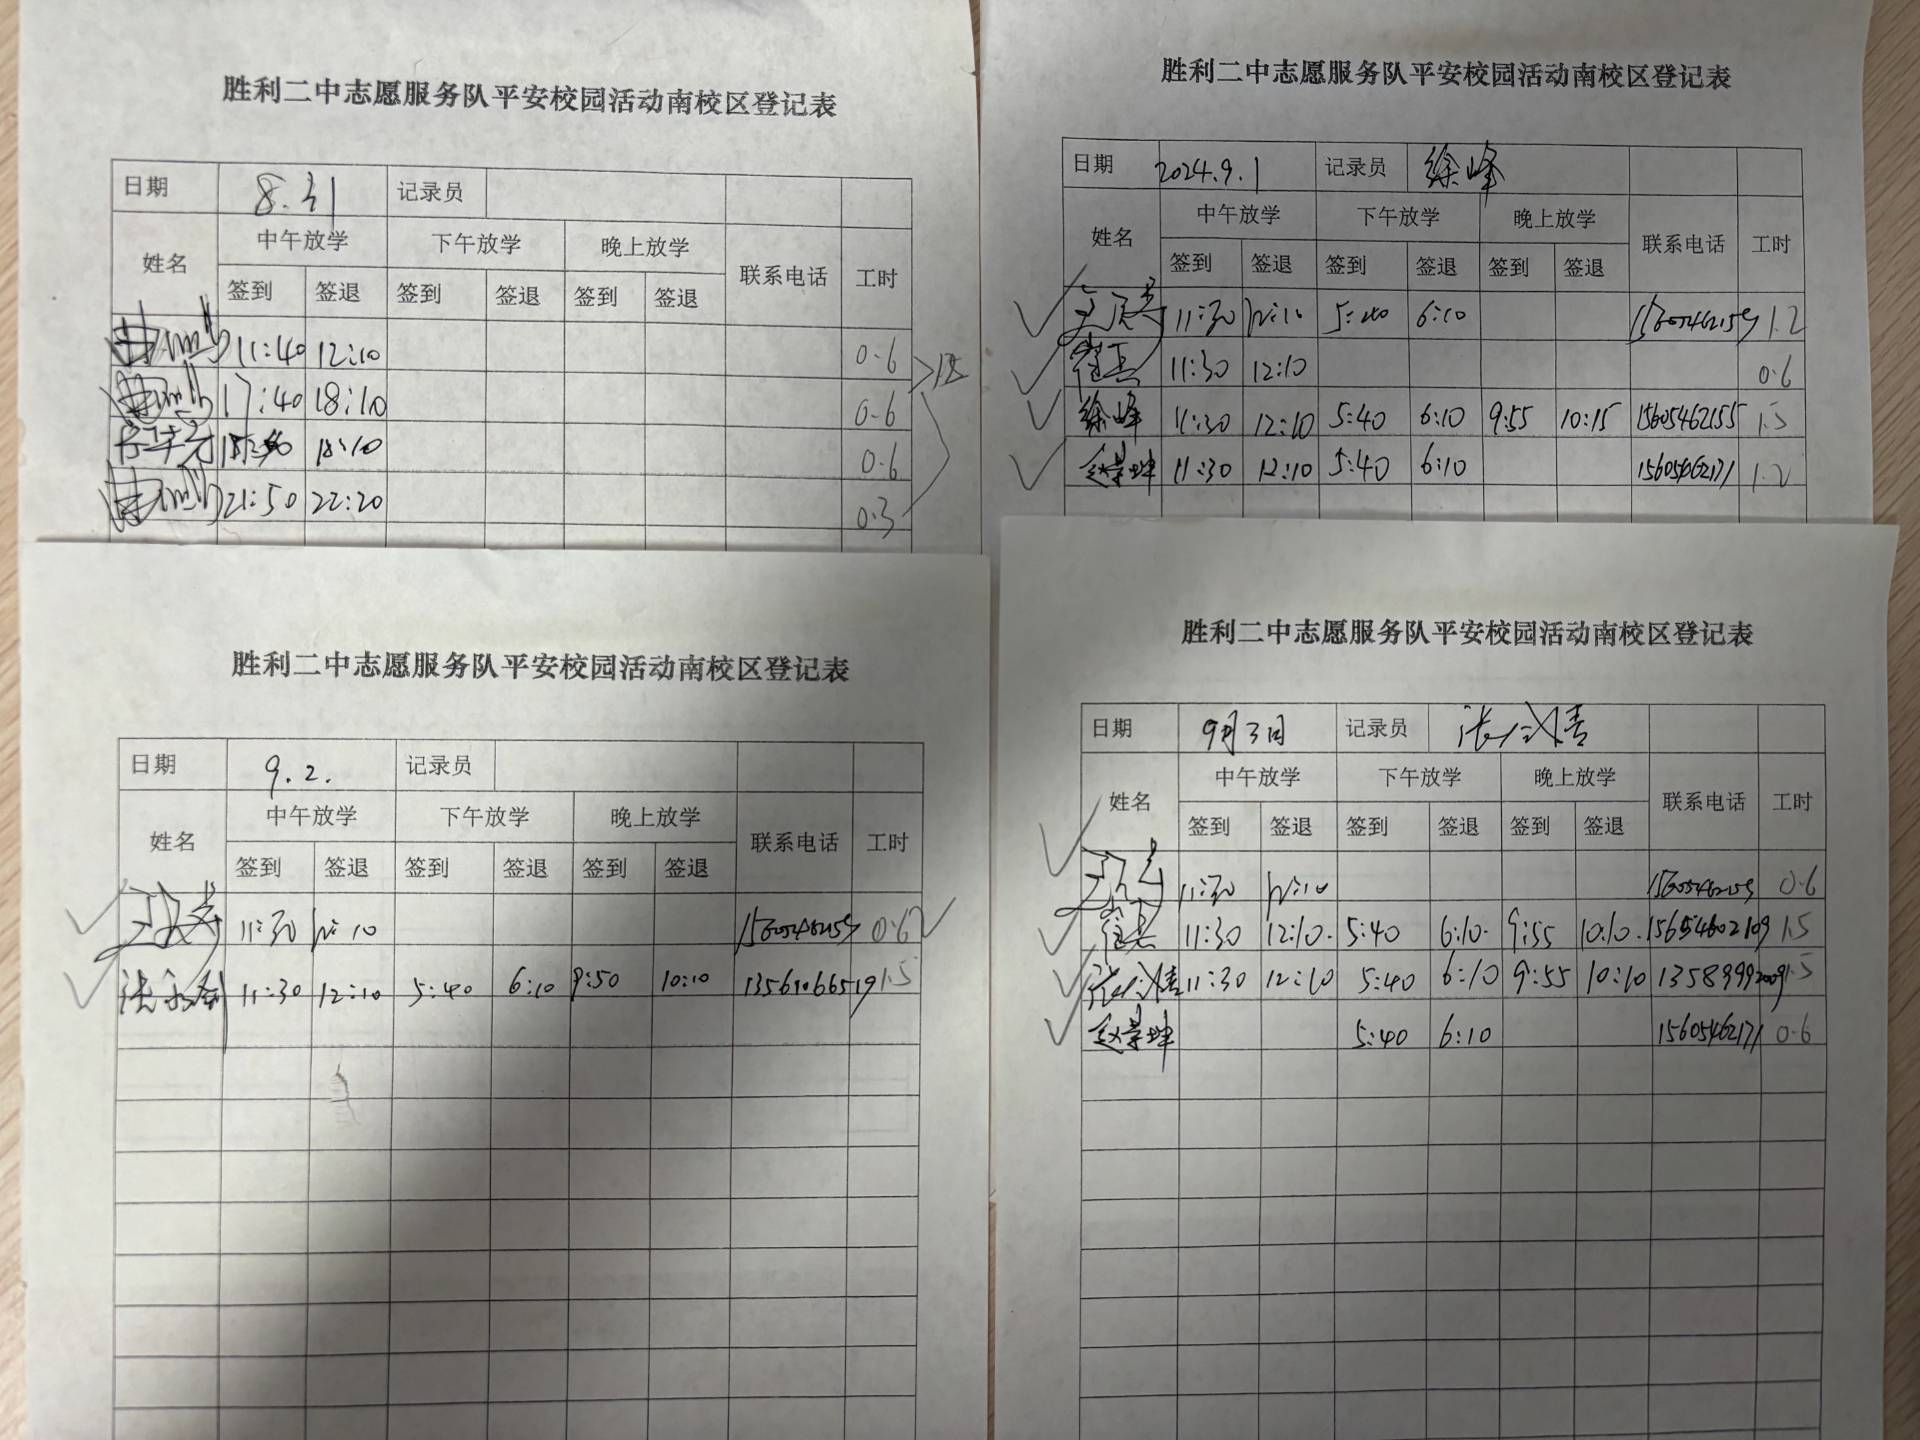 胜利二中志愿服务队平安校园活动南校区登记表
日期 8.31 记录员
姓名 中午放学 下午放学 晚上放学 联系电话 工时
签到 签退 签到 签退 签到 签退
11:40 12:10 0.6
17:40 18:10 0.6
18:10 0.6
21:50 22:20 0.3
胜利二中志愿服务队平安校园活动南校区登记表
日期 2024.9.1 记录员 徐峰
姓名 中午放学 下午放学 晚上放学 联系电话 工时
签到 签退 签到 签退 签到 签退
11:30 12:10 5:40 6:10 1.2
11:30 12:10 0.6
徐峰 11:30 12:10 5:40 6:10 9:55 10:15 15605462155 1.5
赵景坤 11:30 12:10 5:40 6:10 15605462171 1.2
胜利二中志愿服务队平安校园活动南校区登记表
日期 9.2. 记录员
姓名 中午放学 下午放学 晚上放学 联系电话 工时
签到 签退 签到 签退 签到 签退
11:30 12:10 0.6
11:30 12:10 5:40 6:10 9:50 10:10 13561066519 1.5
胜利二中志愿服务队平安校园活动南校区登记表
日期 9月3日 记录员
姓名 中午放学 下午放学 晚上放学 联系电话 工时
签到 签退 签到 签退 签到 签退
11:30 12:10 0.6
11:30 12:10. 5:40 6:10. 9:55 10:10. 15654602109 1.5
11:30 12:10 5:40 6:10 9:55 10:10 13589992009 1.5
赵景坤 5:40 6:10 15605462171 0.6